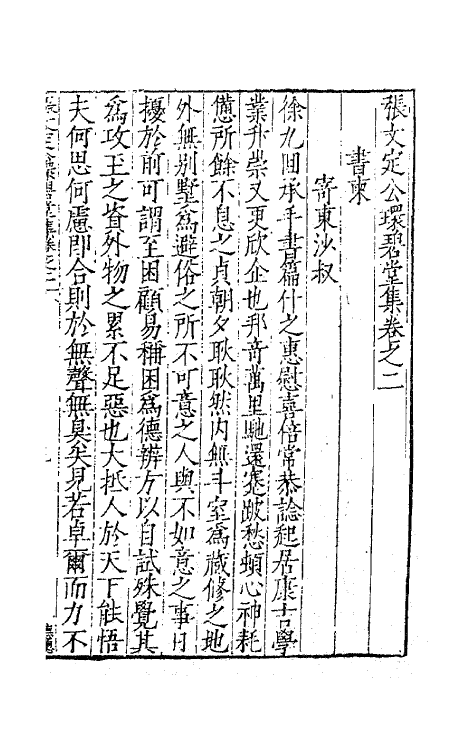 張文定公環碧堂集卷之二
書柬
寄東沙叔
徐九囬承手書篇什之惠慰喜倍常恭諗起居康吉學
業升崇又更欣企也邦奇萬里馳還蹇跛愁頓心神耗
憊所餘不息之貞朝夕耿耿然内無斗室為藏修之地
外無别墅為避俗之所不可意之人與不如意之事日
擾於前可謂至困顧易稱困為德辨方以自試殊覺其
為攻玉之資外物之累不足惡也大抵人於天下能悟
夫何思何慮即合則於無聲無臭矣見若卓爾而力不